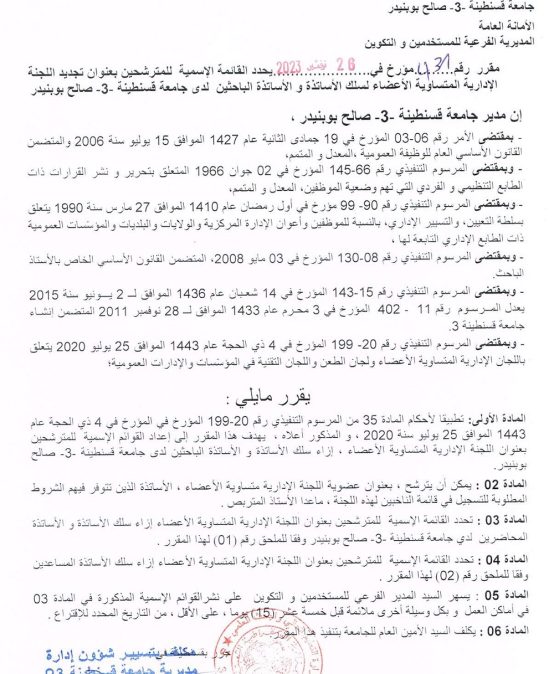 جامعة قسنطينة -3- صالح بوبنيدر
الأمانة العامة
المديرية الفرعية للمستخدمين و التكوين
مقرر رقم 431 مؤرخ في 26 2023 يحدد القائمة الإسمية للمترشحين بعنوان تجديد اللجنة
الإدارية المتساوية الأعضاء لسلك الأساتذة و الأساتذة الباحثين لدى جامعة قسنطينة -3- صالح بوبنيدر
إن مدير جامعة قسنطينة -3- صالح بوبنيدر ،
- بمقتضى الأمر رقم 06-03 المؤرخ في 19 جمادى الثانية عام 1427 الموافق 15 يوليو سنة 2006 والمتضمن
القانون الأساسي العام للوظيفة العمومية ،المعدل و المتمم،
- وبمقتضى المرسوم التنفيذي رقم 66-145 المؤرخ في 02 جوان 1966 المتعلق بتحرير و نشر القرارات ذات
الطابع التنظيمي و الفردي التي تهم وضعية الموظفين، المعدل و المتمم،
- وبمقتضى المرسوم التنفيذي رقم 90- 99 مؤرخ في أول رمضان عام 1410 الموافق 27 مارس سنة 1990 يتعلق
بسلطة التعيين، والتسيير الإداري، بالنسبة للموظفين وأعوان الإدارة المركزية والولايات والبلديات والمؤسسات العمومية
ذات الطابع الإداري التابعة لها ،
- وبمقتضى المرسوم التنفيذي رقم 08-130 المؤرخ في 03 مايو 2008، المتضمن القانون الأساسي الخاص بالأستاذ
الباحث.
- وبمقتضى المرسوم التنفيذي رقم 15-143 المؤرخ في 14 شعبان عام 1436 الموافق لــ 2 يــونيو سنة 2015
يعدل المـرسـوم رقم 11 - 402 المؤرخ في 3 محرم عام 1433 الموافق لــ 28 نوفمبر 2011 المتضمن إنشاء
جامعة قسنطينة 3.
- وبمقتضى المرسوم التنفيذي رقم 20- 199 المؤرخ في 4 ذي الحجة عام 1443 الموافق 25 يوليو 2020 يتعلق
باللجان الإدارية المتساوية الأعضاء ولجان الطعن واللجان التقنية في المؤسسات والإدارات العمومية؛
يقرر مايلي :
المادة الأولى: تطبيقا لأحكام المادة 35 من المرسوم التنفيذي رقم 20-199 المؤرخ في المؤرخ في 4 ذي الحجة عام
1443 الموافق 25 يوليو سنة 2020 ، و المذكور أعلاه ، يهدف هذا المقرر إلى إعداد القوائم الإسمية للمترشحين
بعنوان اللجنة الإدارية المتساوية الأعضاء ، إزاء سلك الأساتذة و الأساتذة الباحثين لدى جامعة قسنطينة -3- صالح
بوبنيدر.
المادة 02 : يمكن أن يترشح ، بعنوان عضوية اللجنة الإدارية متساوية الأعضاء ، الأساتذة الذين تتوفر فيهم الشروط
المطلوبة للتسجيل في قائمة الناخبين لهذه اللجنة ، ماعدا الأستاذ المتربص .
المادة 03 : تحدد القائمة الإسمية للمترشحين بعنوان اللجنة الإدارية المتساوية الأعضاء إزاء سلك الأساتذة و الأساتذة
المحاضرين لدي جامعة قسنطينة -3- صالح بوبنيدر وفقا للملحق رقم (01) لهذا المقرر .
المادة 04 : تحدد القائمة الإسمية للمترشحين بعنوان اللجنة الإدارية المتساوية الأعضاء إزاء سلك الأساتذة المساعدين
وفقا للملحق رقم (02) لهذا المقرر .
المادة 05 : يسهر السيد المدير الفرعي للمستخدمين و التكوين على نشرالقوائم الإسمية المذكورة في المادة 03
في أماكن العمل و بكل وسيلة أخرى ملائمة قبل خمسة عشر (15) يوما ، على الأقل ، من التاريخ المحدد للاقتراع .
المادة 06 : يكلف السيد الأمين العام للجامعة بتنفيذ هذا المقرر
مكلف بتسيير شؤون إدارة
مديرية جامعة قسنطينة 03